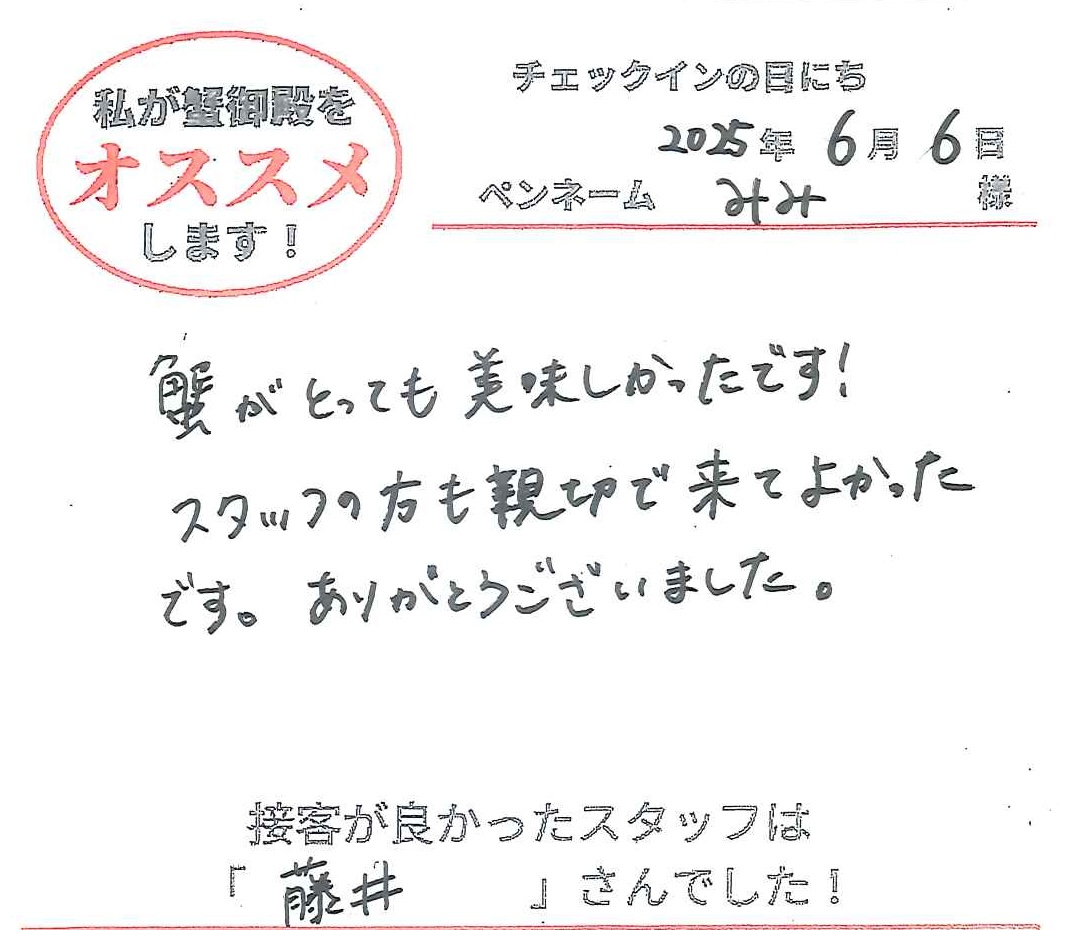 私が蟹御殿を
オススメ
します！
チェックインの日にち
2025年 6月 6日
ペンネーム みみ 様
蟹がとっても美味しかったです!
スタッフの方も親切で来てよかった
です。ありがとうございました。
接客が良かったスタッフは
「 藤井 」さんでした！